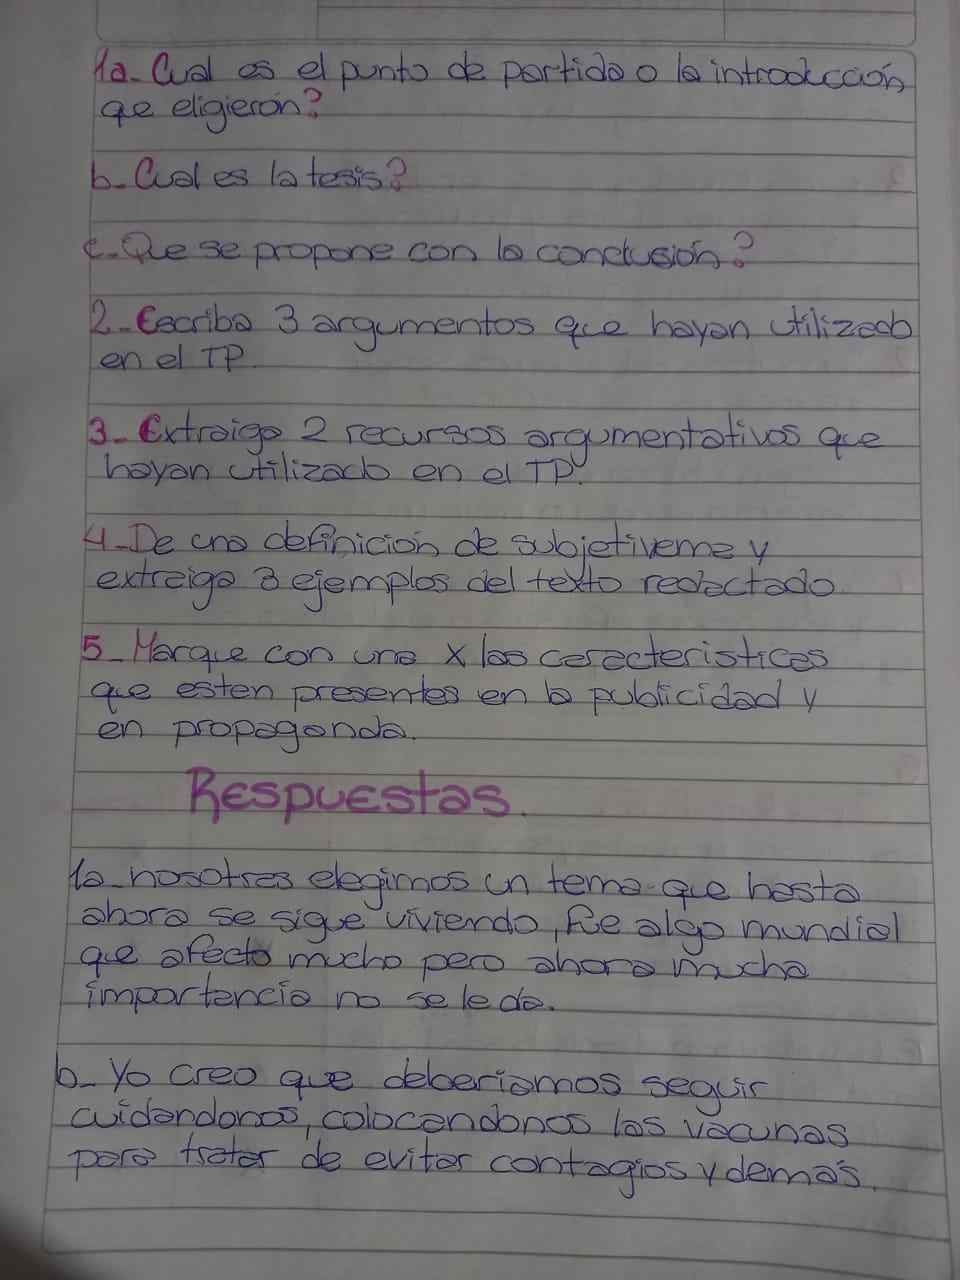 1a- Cual es el punto de partida o la introducción
que eligieron?
b- Cual es la tesis?
c- Que se propone con la conclusión?
2- Escriba 3 argumentos que hayan utilizado
en el TP.
3- Extraiga 2 recursos argumentativos que
hayan utilizado en el TP.
4- De una definición de subjetivema y
extraiga 3 ejemplos del texto redactado.
5- Marque con una x las caracteristicas
que esten presentes en la publicidad y
en propaganda.
Respuestas.
1a- nosotres elegimos un tema que hasta
ahora se sigue viviendo, fue algo mundial
que afecto mucho pero ahora mucha
importancia no se le da.
b- Yo creo que deberiamos seguir
cuidandonos, colocandonos las vacunas
para tratar de evitar contagios y demás.